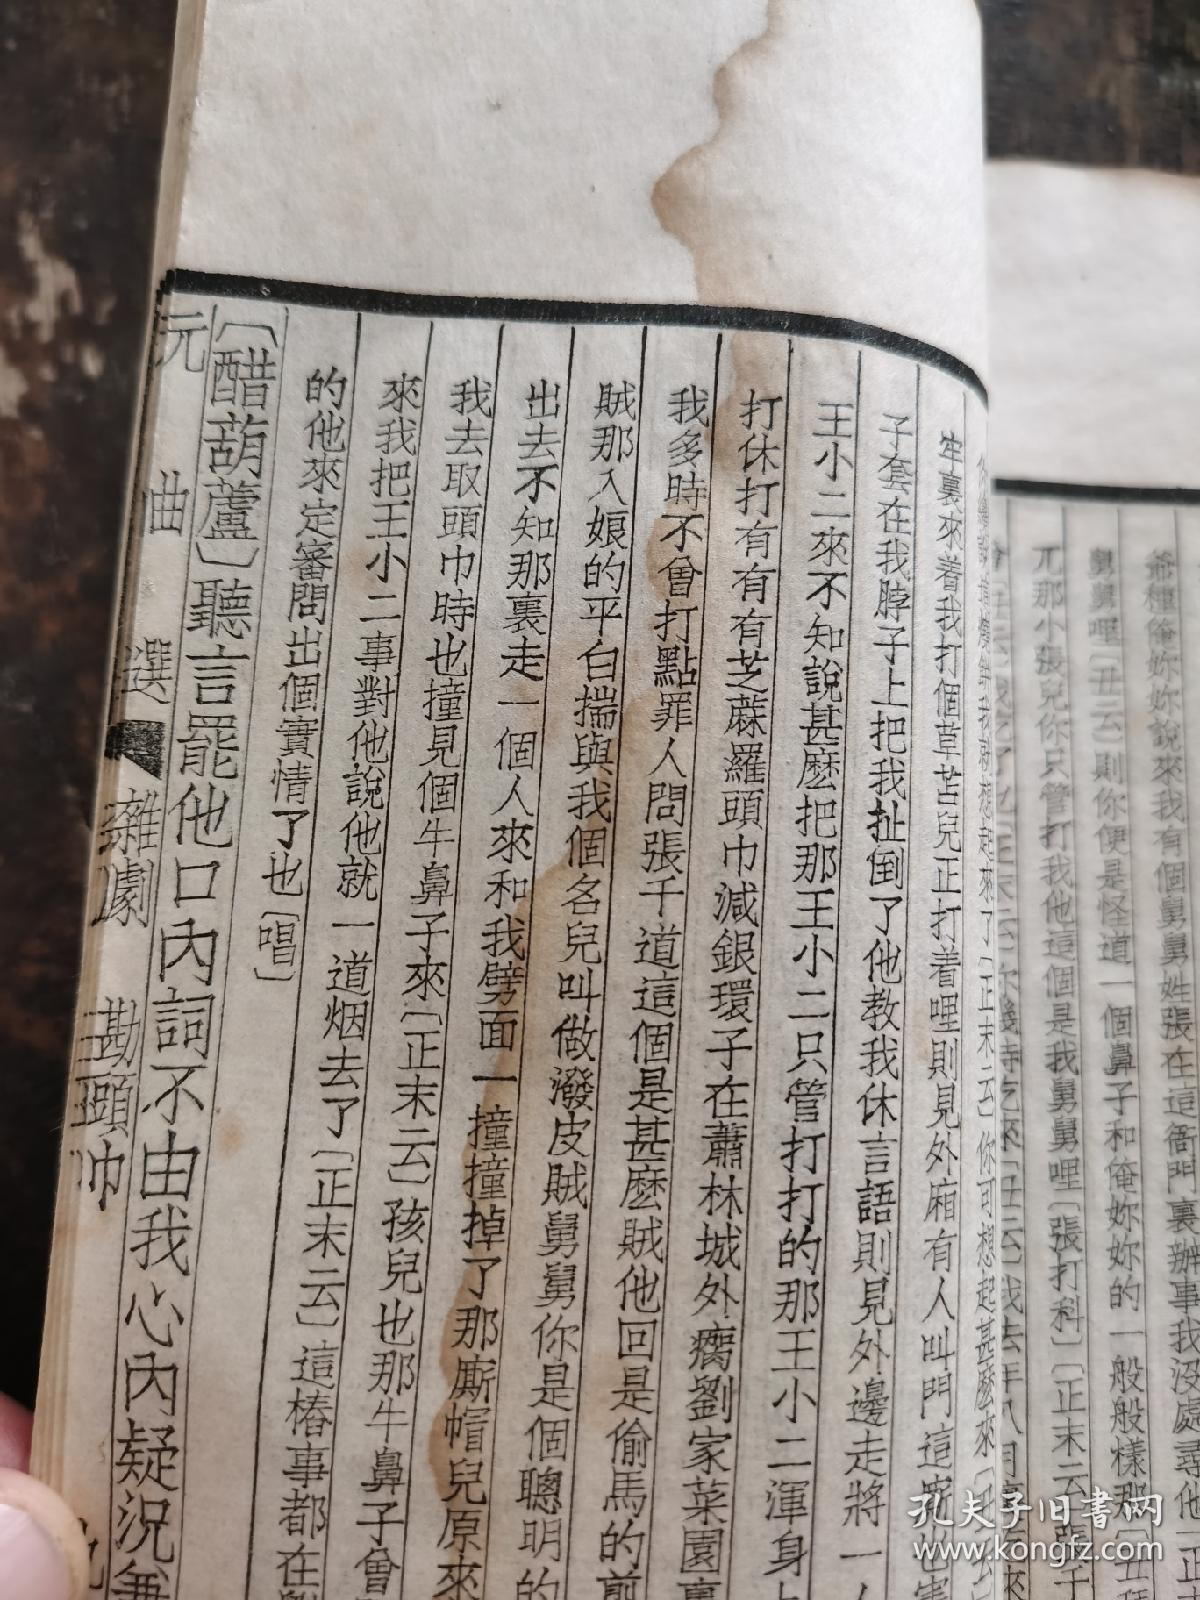 爺種俺妳妳說來我有個舅舅姓張在這衙門裏辦事我沒處尋他
舅舅哩〔丑云〕則你便是怪道一個鼻子和俺妳妳的一般般樣那〔丑
兀那小張兒你只管打我他這個是我舅舅哩〔張打科〕〔正末云〕張千
我就想起來了〔正末云〕你可想起甚麽來
牢裏來着我打個草苫兒正打着哩則見外廂有人叫門這
子套在我脖子上把我扯倒了他教我休言語則見外邊走將一
王小二來不知說甚麽把那王小二只管打打的那王小二渾身
打休打有有有芝蔴羅頭巾減銀環子在蕭林城外瘸劉家菜園
我多時不曾打點罪人問張千道這個是甚麽賊他回是偷馬的
賊那入娘的平白揣與我個名兒叫做潑皮賊舅舅你是個聰明的
出去不知那裏走一個人來和我劈面一撞撞掉了那廝帽兒原來
我去取頭巾時也撞見個牛鼻子來〔正末云〕孩兒也那牛鼻子曾
來我把王小二事對他說他就一道烟去了〔正末云〕這樁事都在
的他來定審問出個實情了也〔唱〕
〔醋葫蘆〕聽言罷他口內詞不由我心內疑況
元曲選 雜劇 勘頭巾
kongfz.com
孔夫子旧书网
www.kongfz.com